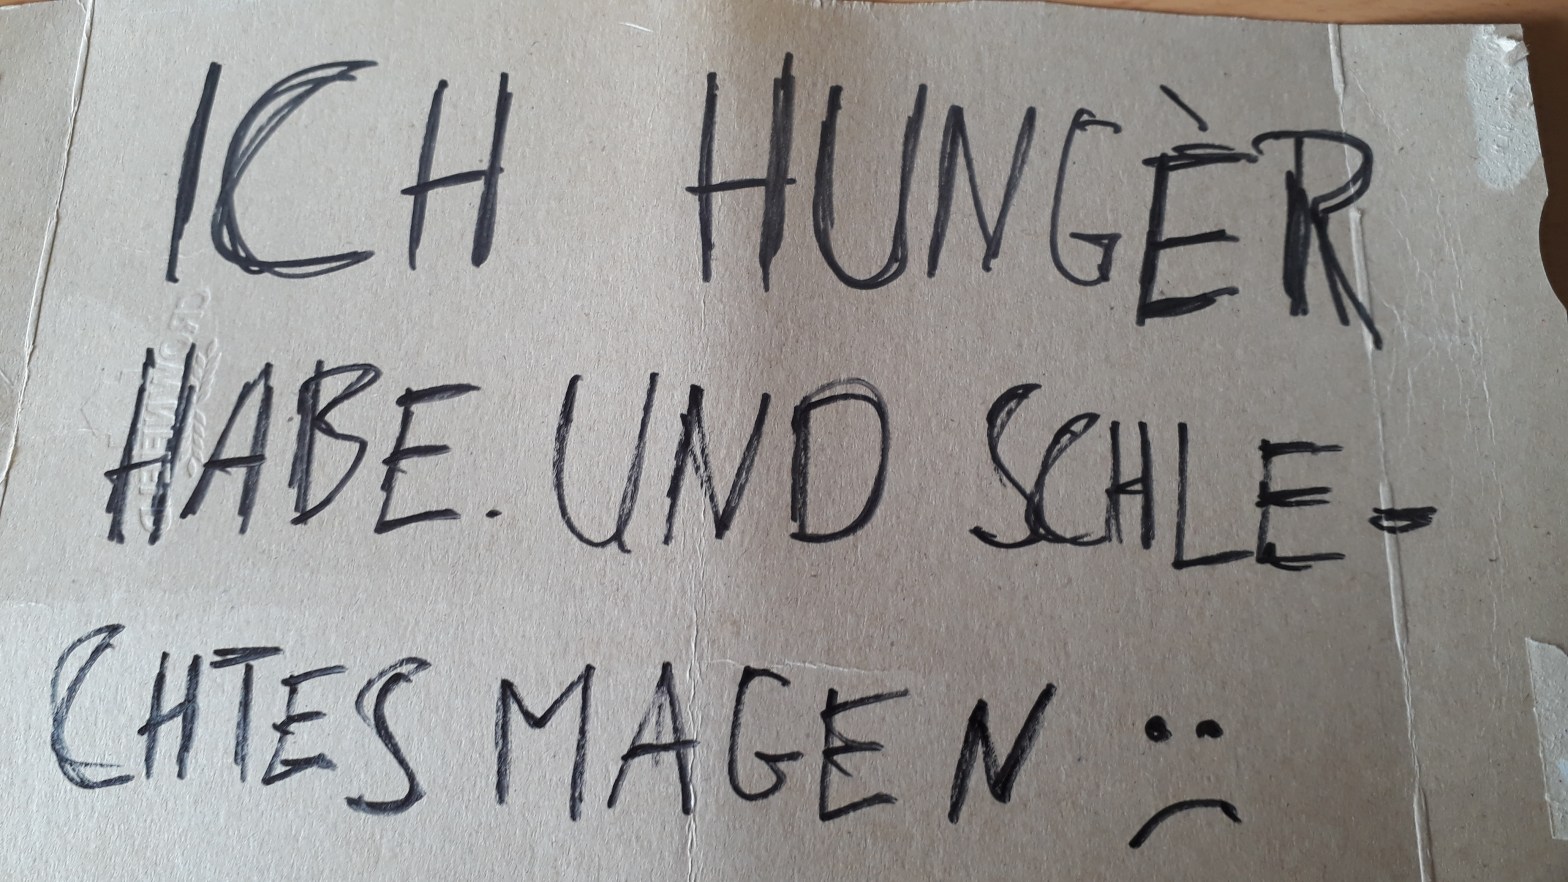 ICH HUNGÈR
HABE. UND SCHLE-
CHTES MAGEN :(